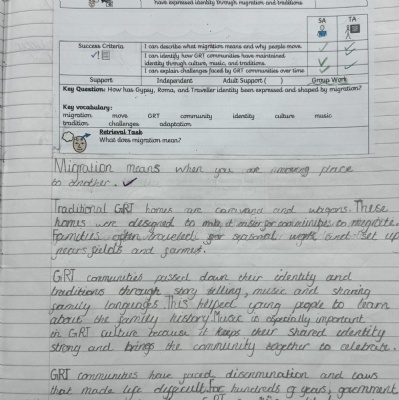 have expressed identity through migration and traditions
SA TA
Success Criteria
I can describe what migration means and why people move.
I can identify how GRT communities have maintained
identity through culture, music, and traditions.
I can explain challenges faced by GRT communities over time
Support Independent Adult Support ( ) Group Work
Key Question: How has Gypsy, Roma, and Traveller identity been expressed and shaped by migration?
Key vocabulary:
migration move GRT community identity culture music
tradition challenges adaptation
Retrieval Task
What does migration mean?
Migration means when you are moving place
to another.
Traditional GRT homes are caravans and wagons. These
homes were designed to make it easier for communities to migrate.
Families often traveled for seasonal work and set up
near fields and farms.
GRT communities passed down their identity and
traditions through story telling, music and sharing
family languages. This helped young people to learn
about the family history. Music is especially important
in GRT culture because it keeps their shared identity
strong and brings the community together to celebrate.
GRT communities have faced discrimination and laws
that made life difficult. For hundreds of years, goverment